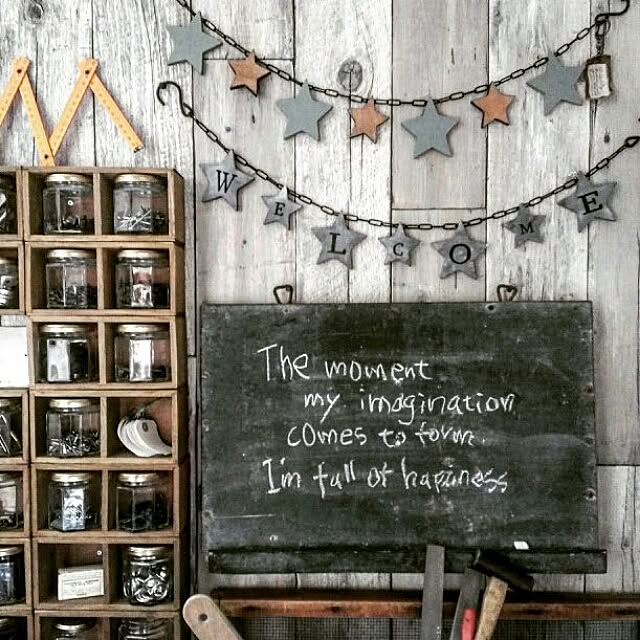 WELCOME
The moment
my imagination
comes to form.
I'm full of happiness